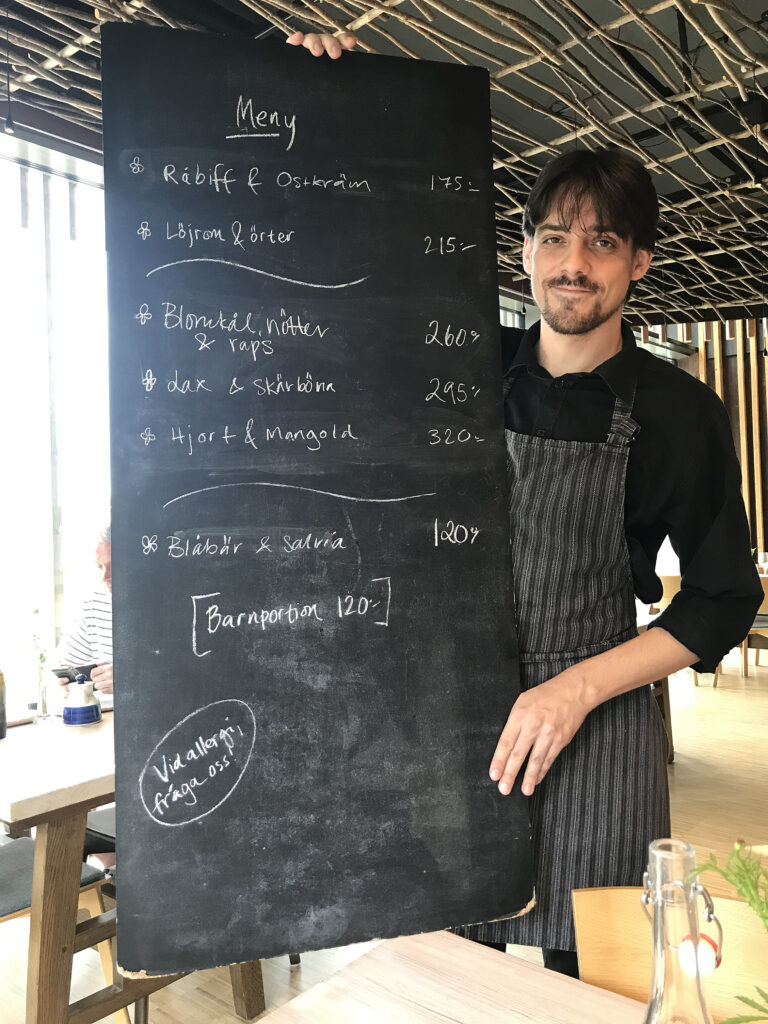 Meny
Råbiff & Ostkräm 175:-
Löjrom & örter 215:-
Blomkål, nötter 260:-
& raps
Lax & Skärböna 295:-
Hjort & Mangold 320:-
Blåbär & Salvia 120:-
[Barnportion 120:-]
Vid allergi,
fråga oss!